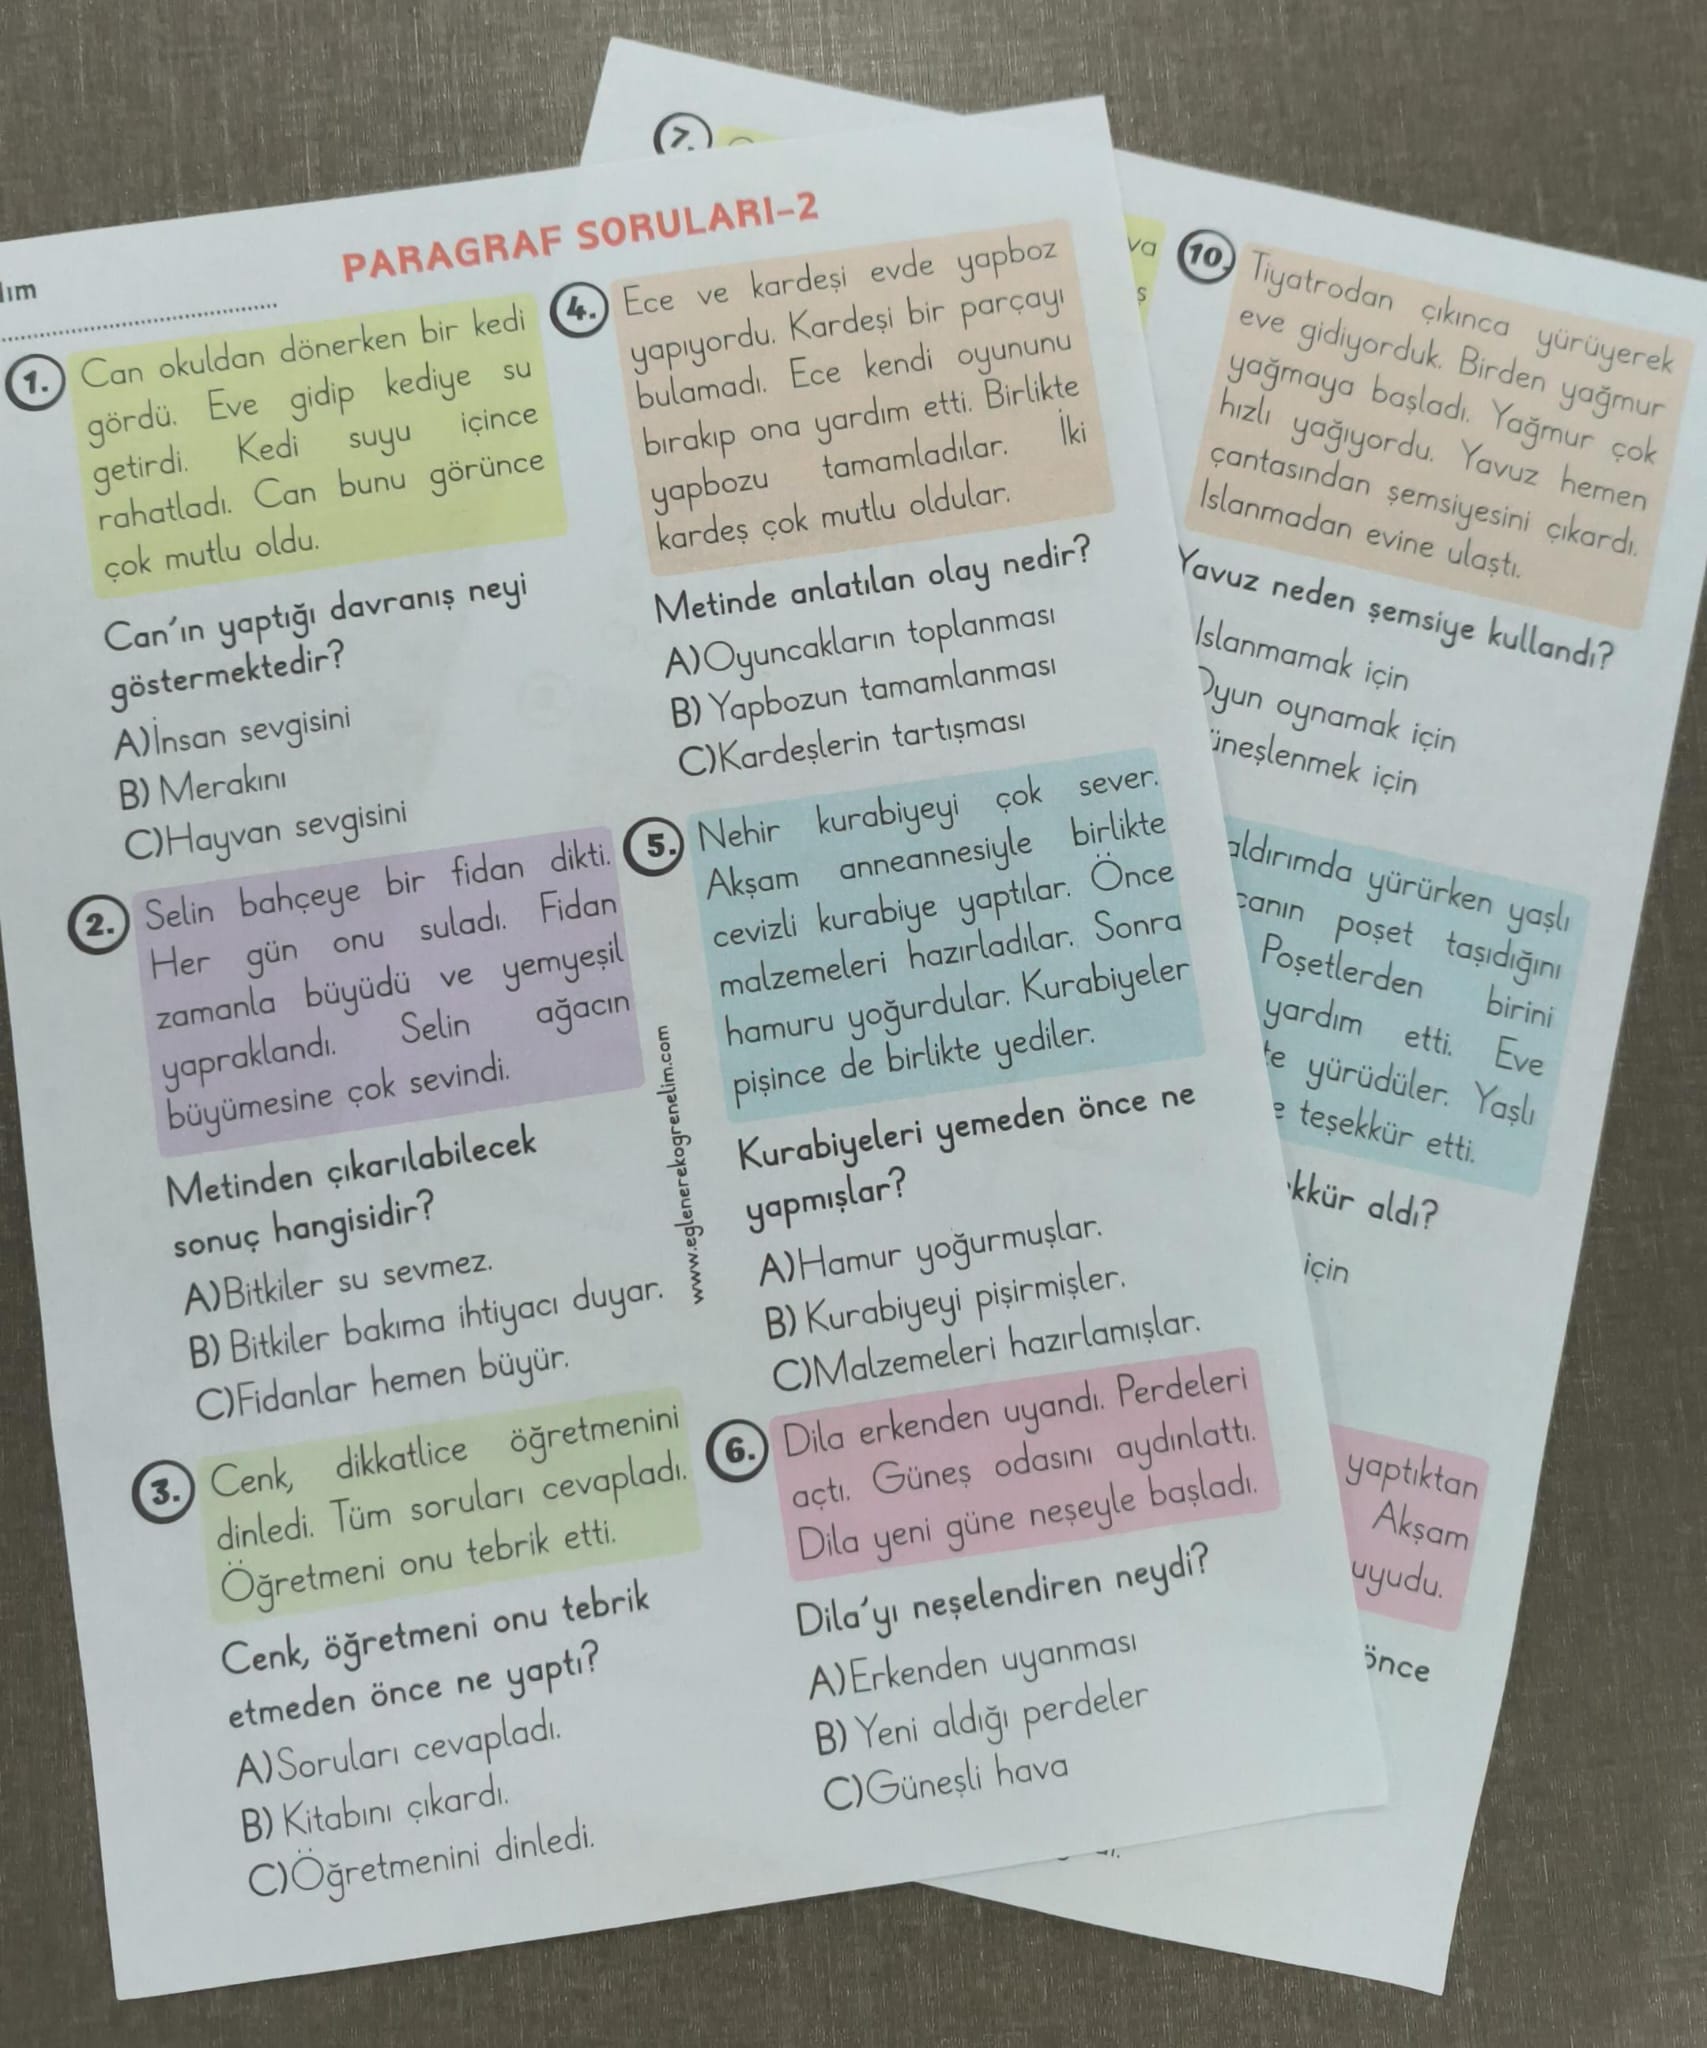 PARAGRAF SORULARI-2
1.
Can okuldan dönerken bir kedi
gördü. Eve gidip kediye su
getirdi. Kedi suyu içince
rahatladı. Can bunu görünce
çok mutlu oldu.
Can'ın yaptığı davranış neyi
göstermektedir?
A)İnsan sevgisini
B) Merakını
C)Hayvan sevgisini
2.
Selin bahçeye bir fidan dikti.
Her gün onu suladı. Fidan
zamanla büyüdü ve yemyeşil
yapraklandı. Selin ağacın
büyümesine çok sevindi.
Metinden çıkarılabilecek
sonuç hangisidir?
A)Bitkiler su sevmez.
B) Bitkiler bakıma ihtiyacı duyar.
C)Fidanlar hemen büyür.
3.
Cenk, dikkatlice öğretmenini
dinledi. Tüm soruları cevapladı.
Öğretmeni onu tebrik etti.
Cenk, öğretmeni onu tebrik
etmeden önce ne yaptı?
A)Soruları cevapladı.
B) Kitabını çıkardı.
C)Öğretmenini dinledi.
4.
Ece ve kardeşi evde yapboz
yapıyordu. Kardeşi bir parçayı
bulamadı. Ece kendi oyununu
bırakıp ona yardım etti. Birlikte
yapbozu tamamladılar. İki
kardeş çok mutlu oldular.
Metinde anlatılan olay nedir?
A)Oyuncakların toplanması
B) Yapbozun tamamlanması
C)Kardeşlerin tartışması
5.
Nehir kurabiyeyi çok sever.
Akşam anneannesiyle birlikte
cevizli kurabiye yaptılar. Önce
malzemeleri hazırladılar. Sonra
hamuru yoğurdular. Kurabiyeler
pişince de birlikte yediler.
Kurabiyeleri yemeden önce ne
yapmışlar?
A)Hamur yoğurmuşlar.
B) Kurabiyeyi pişirmişler.
C)Malzemeleri hazırlamışlar.
6.
Dila erkenden uyandı. Perdeleri
açtı. Güneş odasını aydınlattı.
Dila yeni güne neşeyle başladı.
Dila'yı neşelendiren neydi?
A)Erkenden uyanması
B) Yeni aldığı perdeler
C)Güneşli hava
www.eglenerekogrenelim.com
7.
10.
Tiyatrodan çıkınca yürüyerek
eve gidiyorduk. Birden yağmur
yağmaya başladı. Yağmur çok
hızlı yağıyordu. Yavuz hemen
çantasından şemsiyesini çıkardı.
Islanmadan evine ulaştı.
Yavuz neden şemsiye kullandı?
Islanmamak için
Oyun oynamak için
üneşlenmek için
aldırımda yürürken yaşlı
canın poşet taşıdığını
Poşetlerden birini
yardım etti. Eve
te yürüdüler. Yaşlı
e teşekkür etti.
kkür aldı?
için
yaptıktan
Akşam
uyudu.
önce